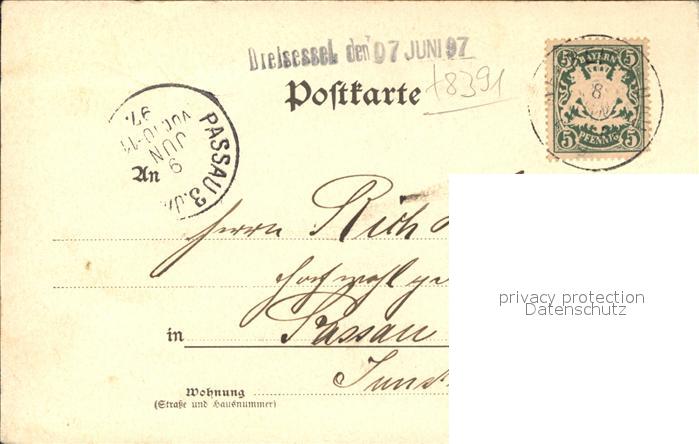 Dreisessel, den 07 JUNI 97
Postkarte
+8391
5 BAYERN 5
5 PFENNIG 5
8
PASSAU 3.
9
JUN
VOR. 10-11
97.
An
Herrn Rich
Hochwohlge
in Passau
Wohnung
(Straße und Hausnummer)
privacy protection
Datenschutz